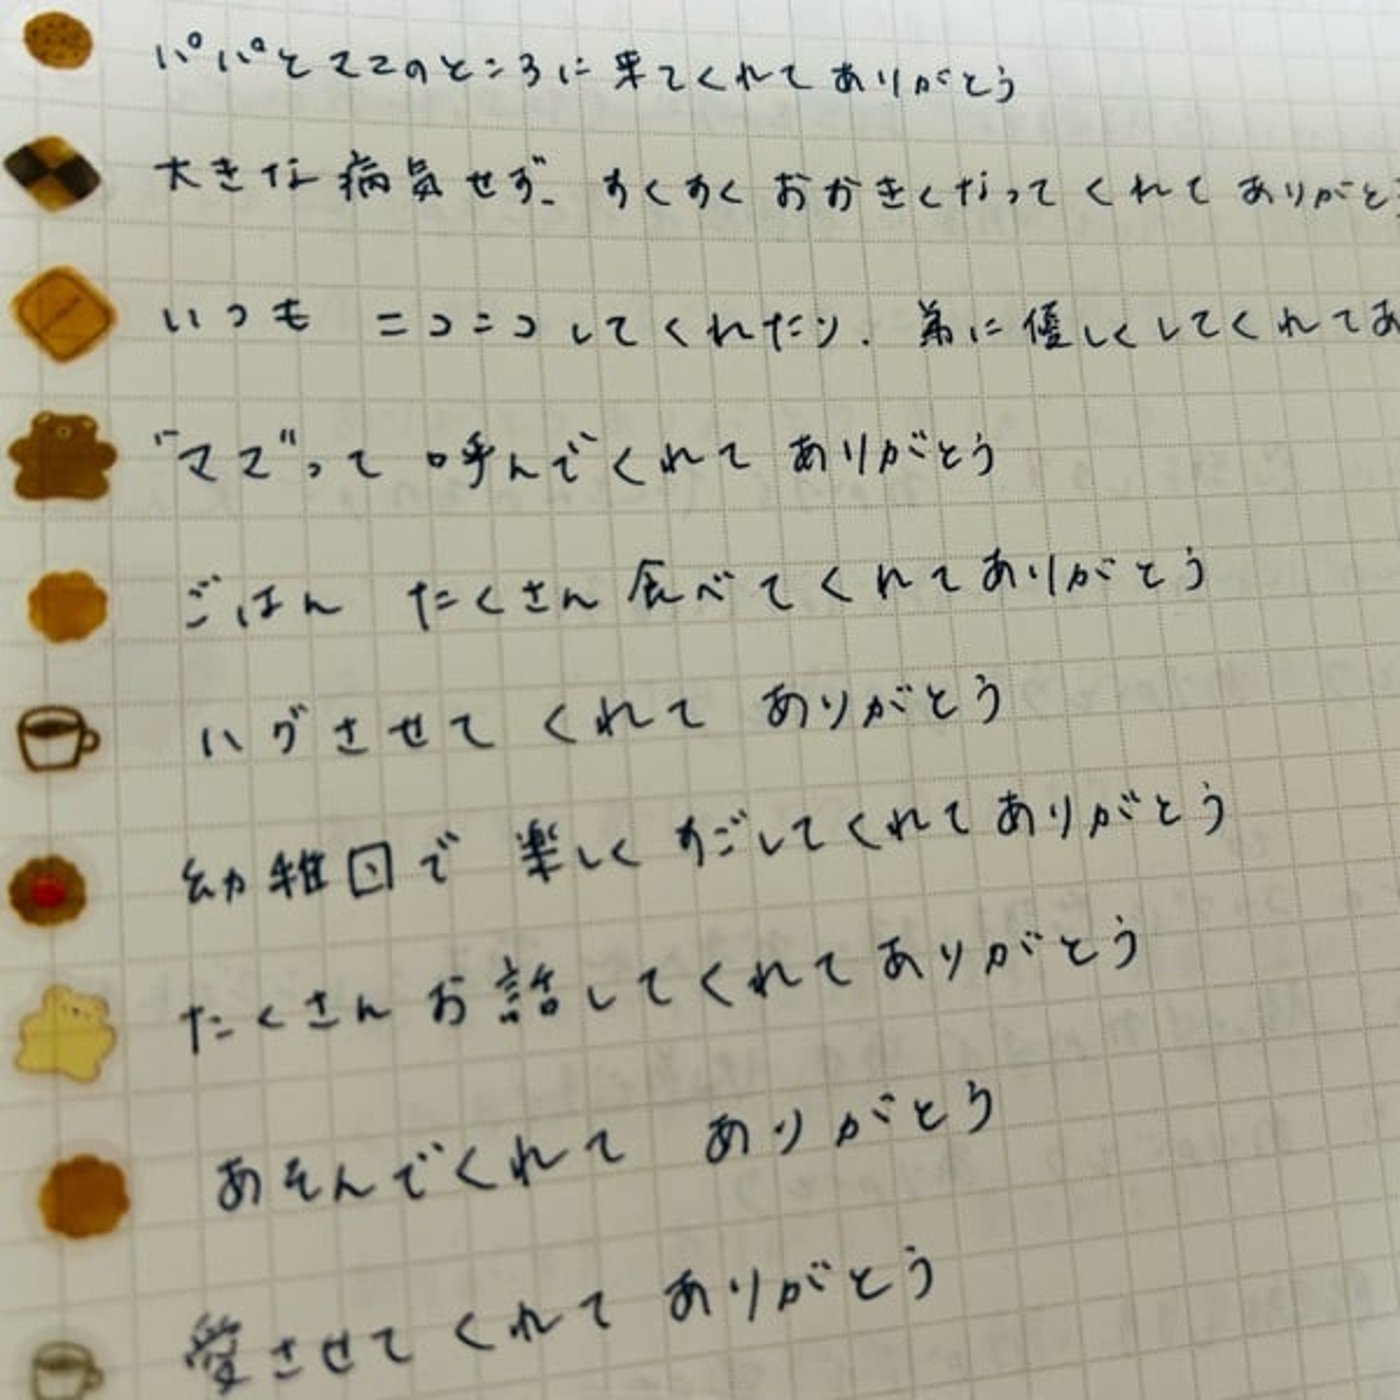 パパとママのところに来てくれてありがとう
大きな病気せず、すくすくおおきくなってくれてありがとう
いつも ニコニコしてくれたり、弟に優しくしてくれてあ
"ママ"って 呼んでくれて ありがとう
ごはん たくさん食べてくれてありがとう
ハグさせて くれて ありがとう
幼稚園で 楽しく すごしてくれてありがとう
たくさん お話してくれてありがとう
あそんでくれて ありがとう
愛させて くれて ありがとう